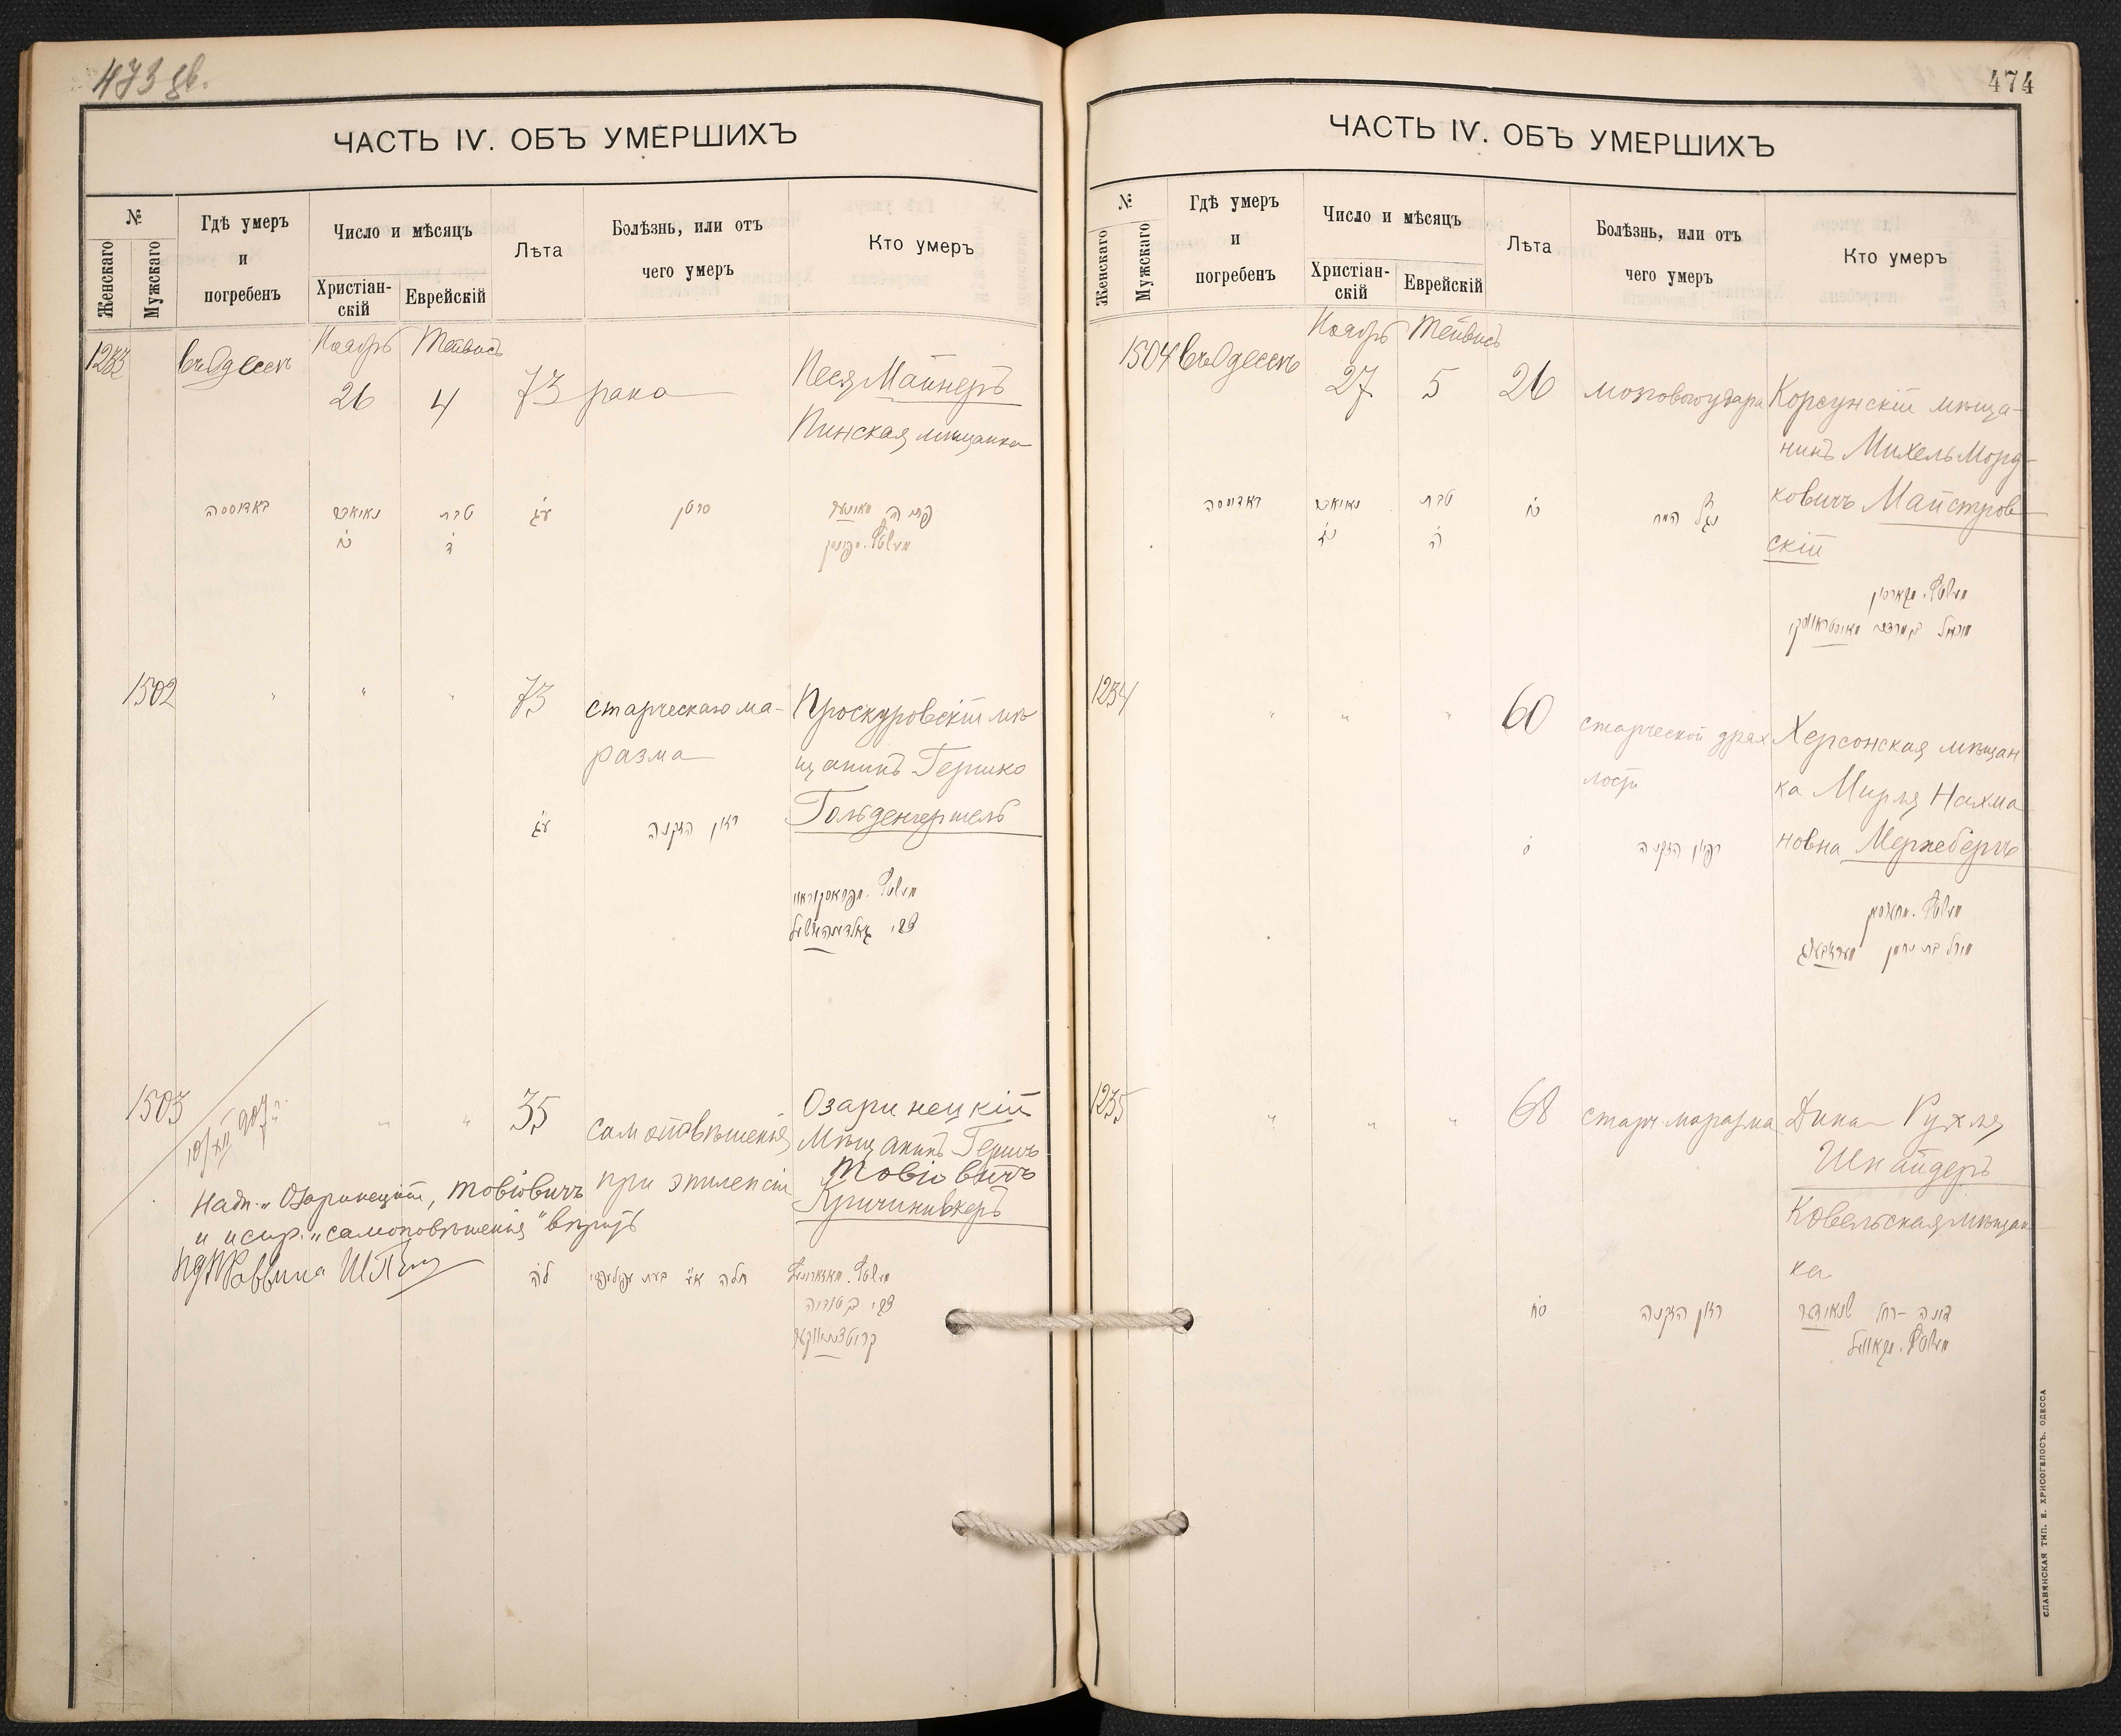 473 об.
ЧАСТЬ IV. ОБЪ УМЕРШИХЪ
№
Женскаго
Мужскаго
Гдѣ умеръ
и
погребенъ
Число и мѣсяцъ
Христіан-
скій
Еврейскій
Лѣта
Болѣзнь, или отъ
чего умеръ
Кто умеръ
1233
въ Одессѣ
Ноябрь
26
Тейвисъ
4
73
рака
Песя Майнеръ
Пинская мѣщанка
באדוססה
נאיאבר
טבת
ד
עג
סרטן
1502
"
"
"
73
старческаго ма-
разма
Проскуровскій мѣ
щанинъ Гершко
Гольденгершель
עג
רזון הזקנה
1503
"
"
35
самоповѣшенія
при эпилепсіи
Озаринецкій
Мѣщанинъ Гершъ
Товіовичъ
10/XII 907 г.
Надп. „Озаринецкій, Товіовичъ
и испр. „самоповѣшенія" вѣрить
Раввина
לה
474
ЧАСТЬ IV. ОБЪ УМЕРШИХЪ
№
Женскаго
Мужскаго
Гдѣ умеръ
и
погребенъ
Число и мѣсяцъ
Христіан-
скій
Еврейскій
Лѣта
Болѣзнь, или отъ
чего умеръ
Кто умеръ
1504
въ Одессѣ
Ноябрь
27
Тейвисъ
5
26
мозгового удара
Корсунскій мѣща-
нинъ Михель Морд-
ковичъ Майстров-
скій
באדוססה
נאיאבר
טבת
ה
1234
"
"
"
60
старческой дрях
лости
Херсонская мѣщан
ка Мирля Нахма
новна Мержеберъ
ס
רפיון הזקנה
1235
"
"
"
68
старч. маразма
Дина Рухля
Шнайдеръ
Ковельская мѣщан-
ка
סח
רזון הזקנה
דינה - רחל שנאידער
СЛАВЯНСКАЯ ТИП. Е. ХРИСОГЕЛОСЪ. ОДЕССА